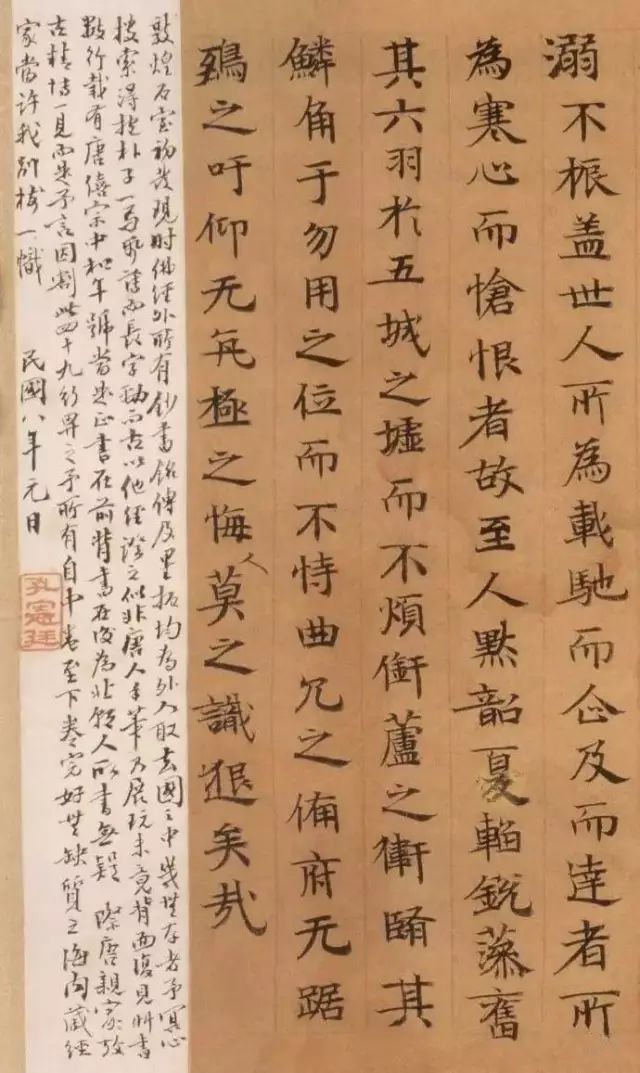 溺不振盖世人所為載馳而企及而達者所
為寒心而愴恨者故至人黙韶夏韜銳藻奮
其六羽於五城之墟而不煩銜蘆之衛翳其
鱗角于勿用之位而不恃曲穴之俻府无踞
鵄之吁仰无亢極之悔人莫之識邈矣哉
敦煌石室初發現時佛經外所有鈔書銘傳及拓均為外人取去國之中幾無存者予冥心
搜索淂抱朴子一而長字勁而古以他經證之似非唐人手筆乃展玩未竟背面復見此書
數行載有唐僖宗中和年號當然正書在前背書在後為人所書無疑際唐親家故
古精博一見而然予言因割此四十九行畀之予所有自中卷至下卷完好無缺質之海内藏經
家當許我別樹一幟 民國八年元日
孔憲廷